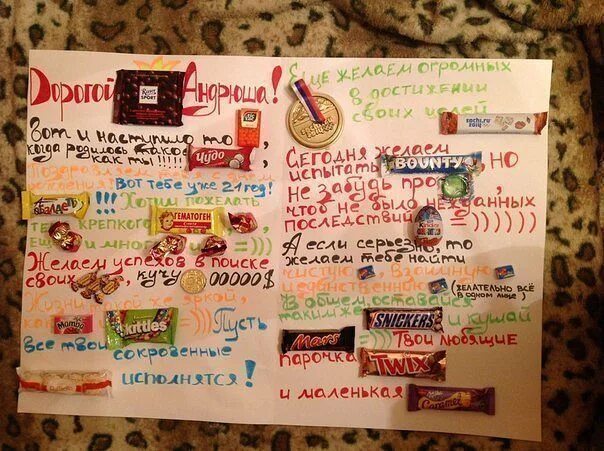 Дорогой RITTER SPORT Андрюша!
Вот и наступило то
когда родилось такое Чудо,
как ты!!!!!
Поздравляем тебя с днём
рождения! Вот тебе уже 21 год!
!!! Хотим пожелать
тебе крепкого ГЕМАТОГЕН
ещё и много =)))
Желаем успехов в поиске
своих, кучу 00000$
Жизни такой же яркой,
как Mamba Skittles =))) Пусть
все твои сокровенные
исполнятся!
Еще желаем огромных
в достижении
своих целей
sochi.ru 2014
Сегодня желаем
испытать BOUNTY, но
не забудь про
чтоб не было нежданных
последствий Kinder =)))))
А если серьезно, то
желаем тебе найти
чистую, взаимную,
единственную (желательно всё
в одном лице)
В общем, оставайся
таким же SNICKERS и кушай
Mars =))) Твои любящие
парочка TWIX
и маленькая Caramel